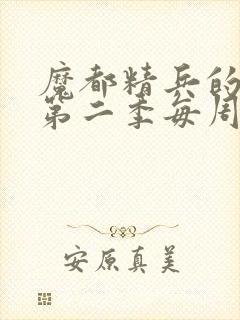 魔都精兵的
第二季每周
安原真美